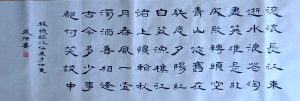 滾滾長江東
逝水浪花淘
盡英雄是非
成敗轉頭空
青山依舊在
幾度夕陽紅
白髮漁樵江
渚上慣看秋
月春風一壺
濁酒喜相逢
古今多少事
都付笑談中
楊慎臨江仙庚子仲夏
書